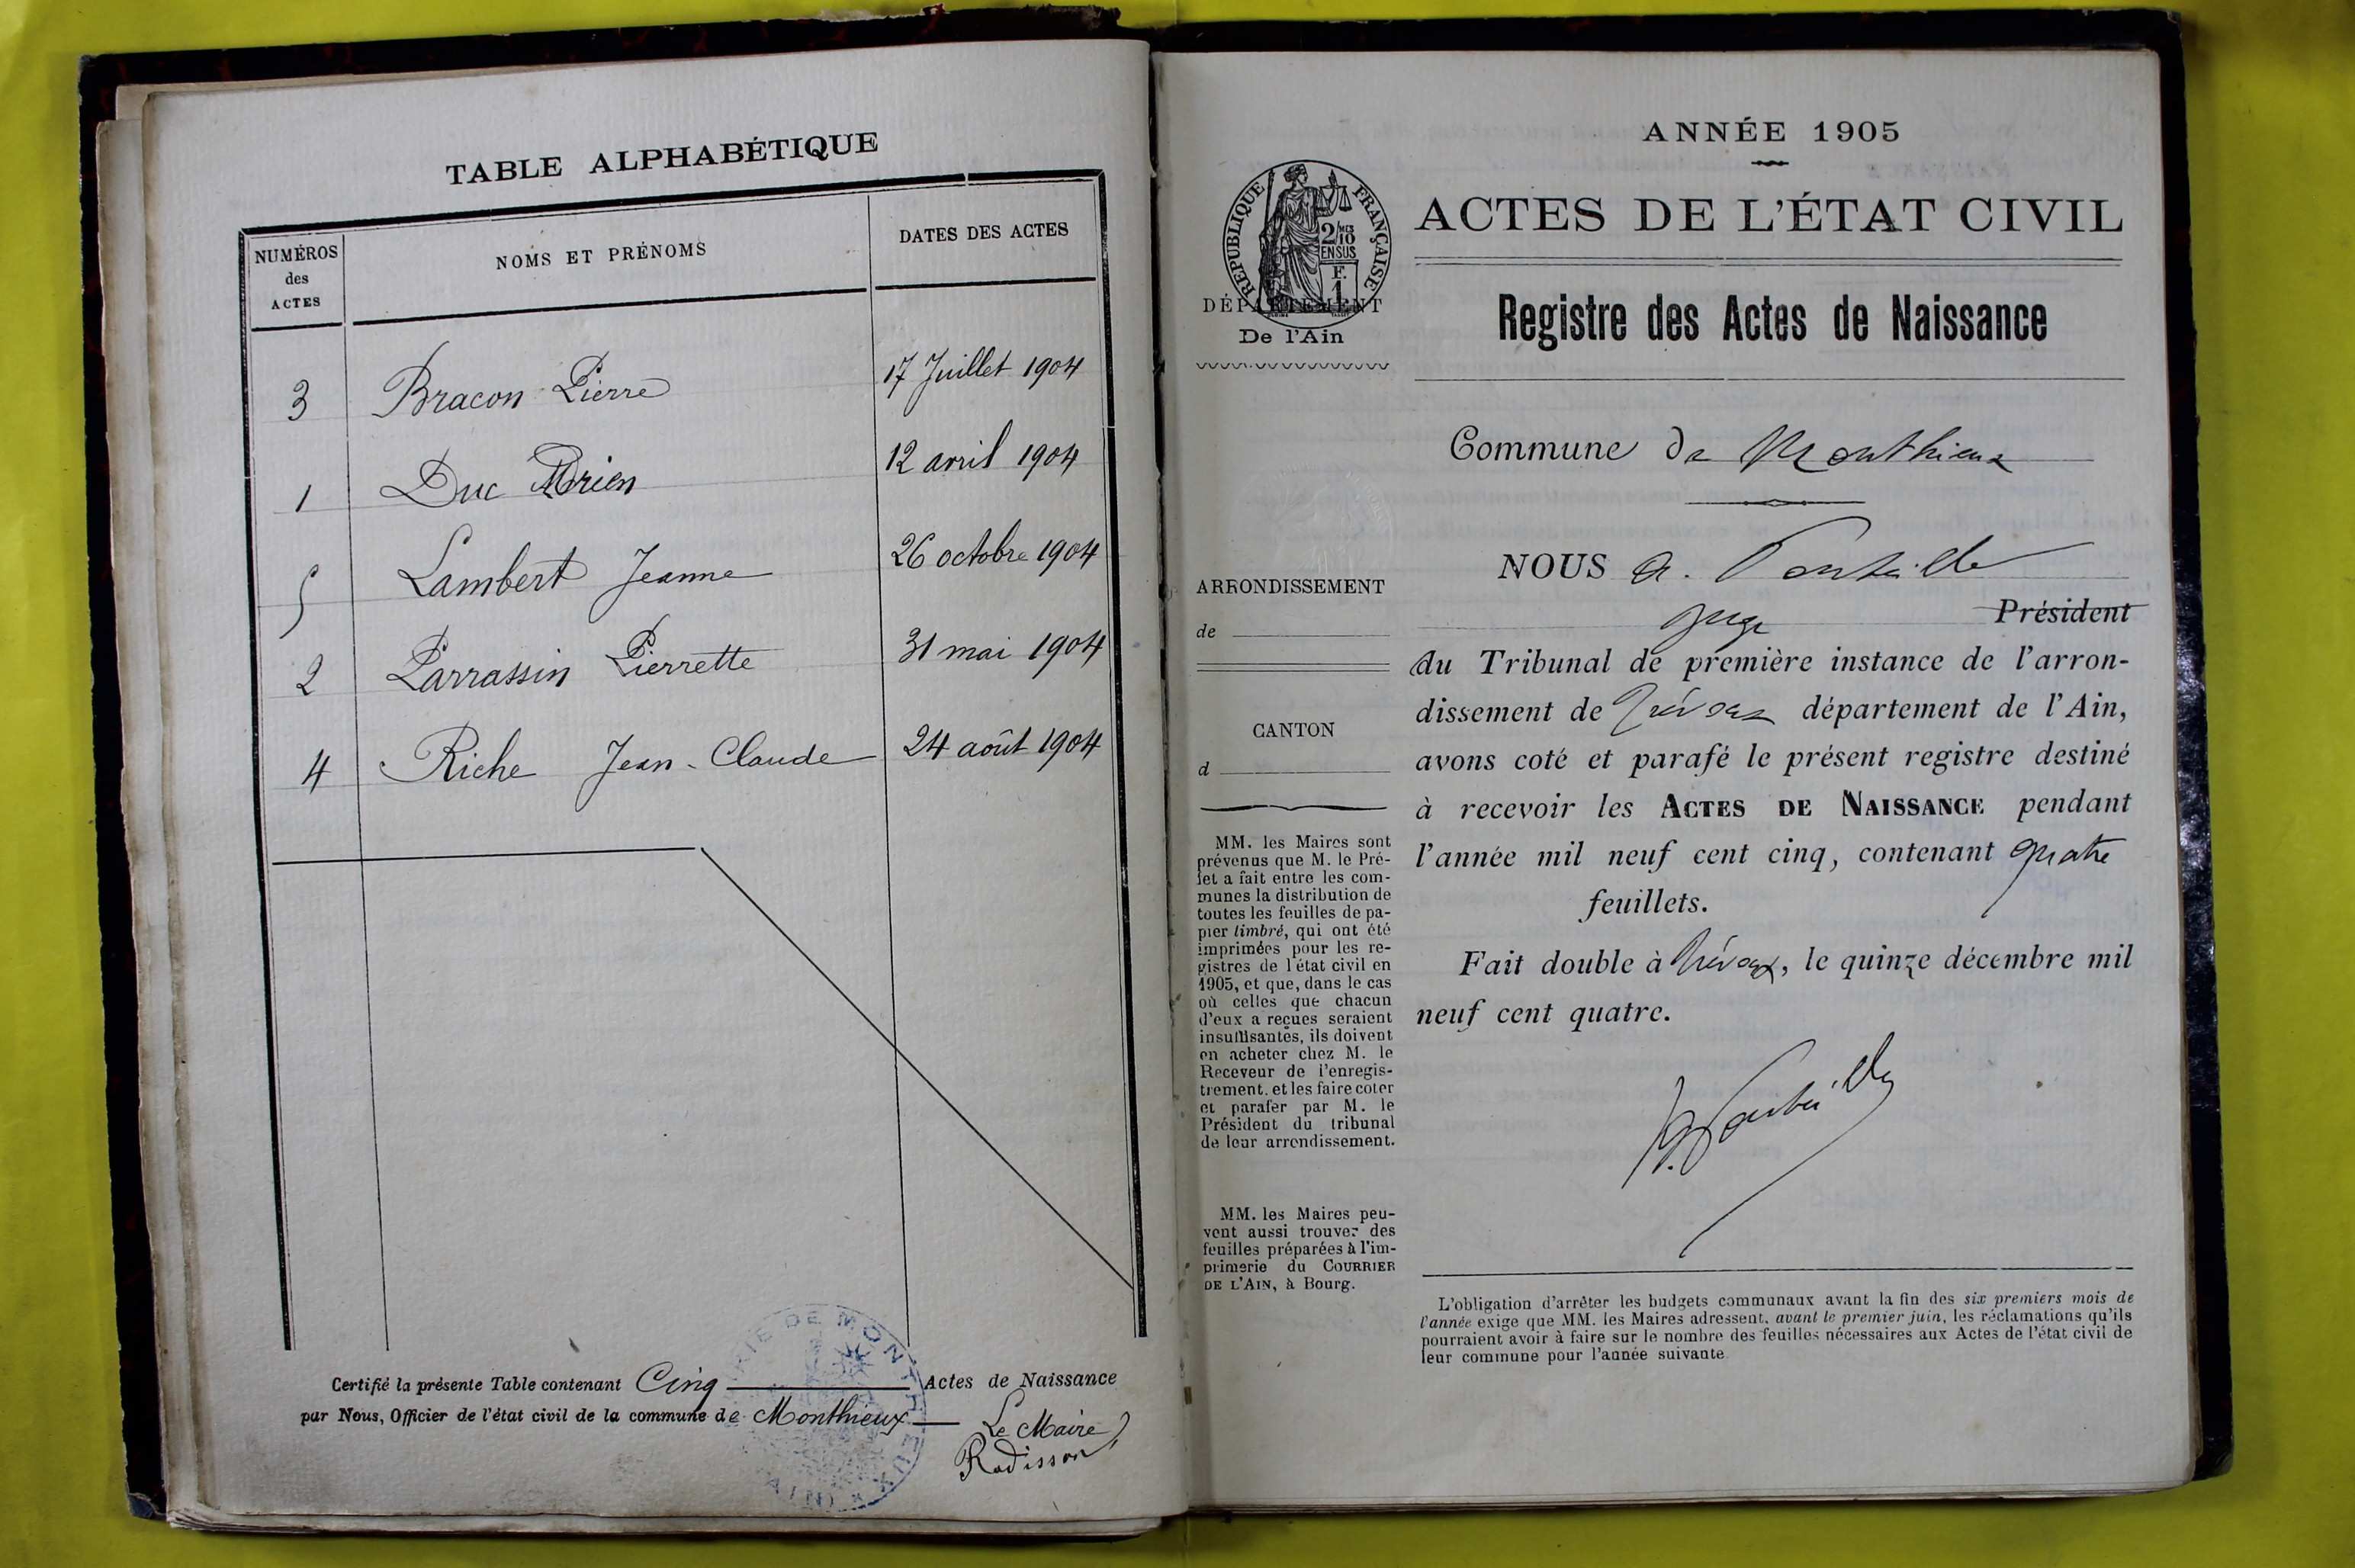 TABLE ALPHABÉTIQUE
NUMÉROS
des
ACTES
NOMS ET PRÉNOMS
DATES DES ACTES
3 Bracon Pierre 17 Juillet 1904
1 Duc Adrien 12 avril 1904
5 Lambert Jeanne 26 octobre 1904
2 Parrassin Pierrette 31 mai 1904
4 Riche Jean-Claude 24 août 1904
Certifié la présente Table contenant Cinq Actes de Naissance
par Nous, Officier de l'état civil de la commune de Monthieux Le Maire
Radisson
MAIRIE DE MONTHIEUX
(AIN)
ANNÉE 1905
ACTES DE L'ÉTAT CIVIL
RÉPUBLIQUE FRANÇAISE
2/10
EN SUS
F.
1
DÉPARTEMENT
De l'Ain
Registre des Actes de Naissance
Commune de Monthieux
ARRONDISSEMENT
de
CANTON
d
MM. les Maires sont
prévenus que M. le Pré-
fet a fait entre les com-
munes la distribution de
toutes les feuilles de pa-
pier timbré, qui ont été
imprimées pour les re-
gistres de l'état civil en
1905, et que, dans le cas
où celles que chacun
d'eux a reçues seraient
insuffisantes, ils doivent
en acheter chez M. le
Receveur de l'enregis-
trement, et les faire coter
et parafer par M. le
Président du tribunal
de leur arrondissement.
MM. les Maires peu-
vent aussi trouver des
feuilles préparées à l'im-
primerie du COURRIER
DE L'AIN, à Bourg.
NOUS A.
juge Président
du Tribunal de première instance de l'arron-
dissement de Trévoux département de l'Ain,
avons coté et parafé le présent registre destiné
à recevoir les ACTES DE NAISSANCE pendant
l'année mil neuf cent cinq, contenant quatre
feuillets.
Fait double à Trévoux, le quinze décembre mil
neuf cent quatre.
L'obligation d'arrêter les budgets communaux avant la fin des six premiers mois de
l'année exige que MM. les Maires adressent, avant le premier juin, les réclamations qu'ils
pourraient avoir à faire sur le nombre des feuilles nécessaires aux Actes de l'état civil de
leur commune pour l'année suivante